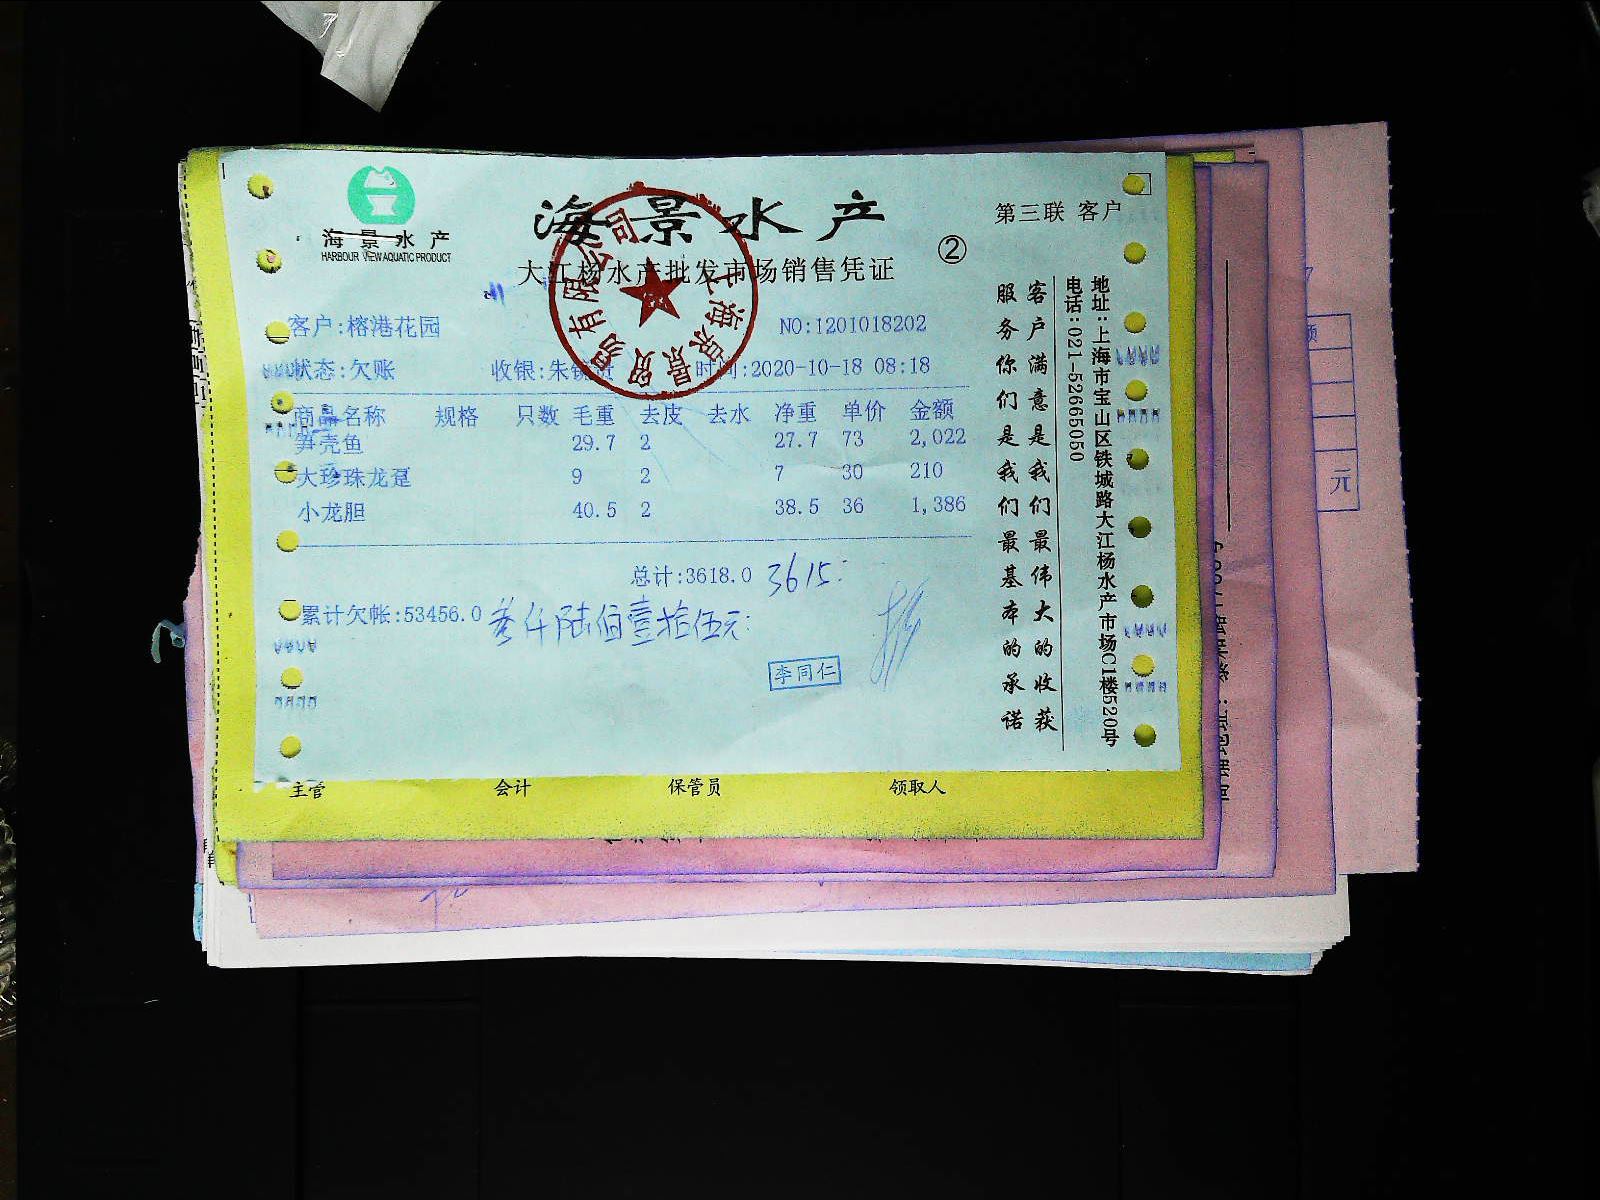 海景水产
HARBOUR VIEW AQUATIC PRODUCT
海景水产
第三联 客户
②
大江杨水产批发市场销售凭证
客户:榕港花园
NO:1201018202
状态:欠账
收银:朱
时间:2020-10-18 08:18
商品名称 规格 只数 毛重 去皮 去水 净重 单价 金额
笋壳鱼 29.7 2 27.7 73 2,022
大珍珠龙趸 9 2 7 30 210
小龙胆 40.5 2 38.5 36 1,386
总计:3618.0 3615:
累计欠帐:53456.0 叁仟陆佰壹拾伍元:
李同仁
上海泉景贸易有限公司
客户满意是我们最伟大的收获
服务你们是我们最基本的承诺
地址:上海市宝山区铁城路大江杨水产市场C1楼520号
电话:021-52665050
主管 会计 保管员 领取人
元